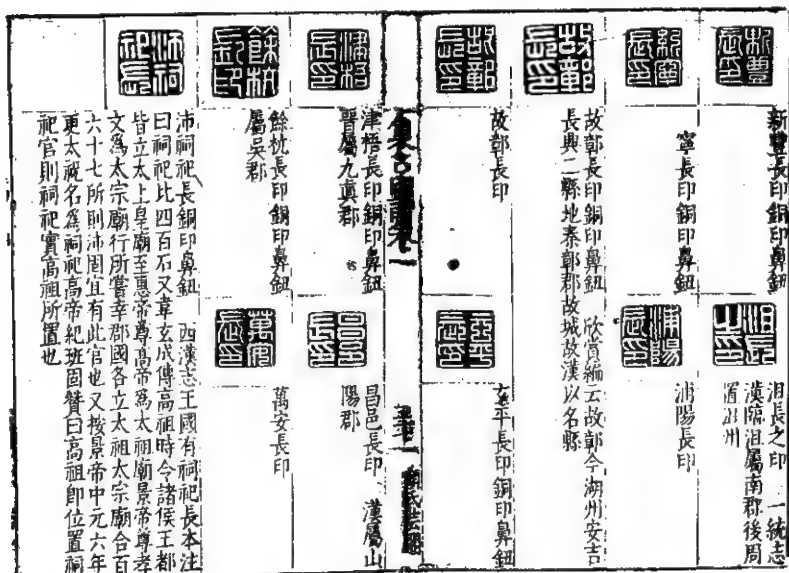 新豐長印
新豐長印銅印鼻鈕
沮長之印
沮長之印　一統志
漢臨沮屬南郡後周
置沮州
新寧長印
寧長印銅印鼻鈕
浦陽長印
浦陽長印
故鄣長印
故鄣長印銅印鼻鈕　欣賞編云故鄣今湖州安吉
長興二縣地秦鄣郡故城故漢以名縣
故鄣長印
故鄣長印
玄平長印
玄平長印銅印鼻鈕
津梧長印
津梧長印銅印鼻鈕
晉屬九真郡
昌邑長印
昌邑長印　漢屬山
陽郡
餘杭長印
餘杭長印銅印鼻鈕
屬吳郡
萬安長印
萬安長印
沛祠祀長
沛祠祀長銅印鼻鈕　西漢志王國有祠祀長本注
曰祠祀比四百石又韋玄成傳高祖時令諸侯王都
皆立太上皇廟至惠帝尊高帝為太祖廟景帝尊孝
文為太宗廟行所嘗幸郡國各立太祖太宗廟合百
六十七所則沛固宜有此官也又按景帝中元六年
更太祝名為祠祀高帝紀班固贊曰高祖即位置祠
祀官則祠祀實高祖所置也